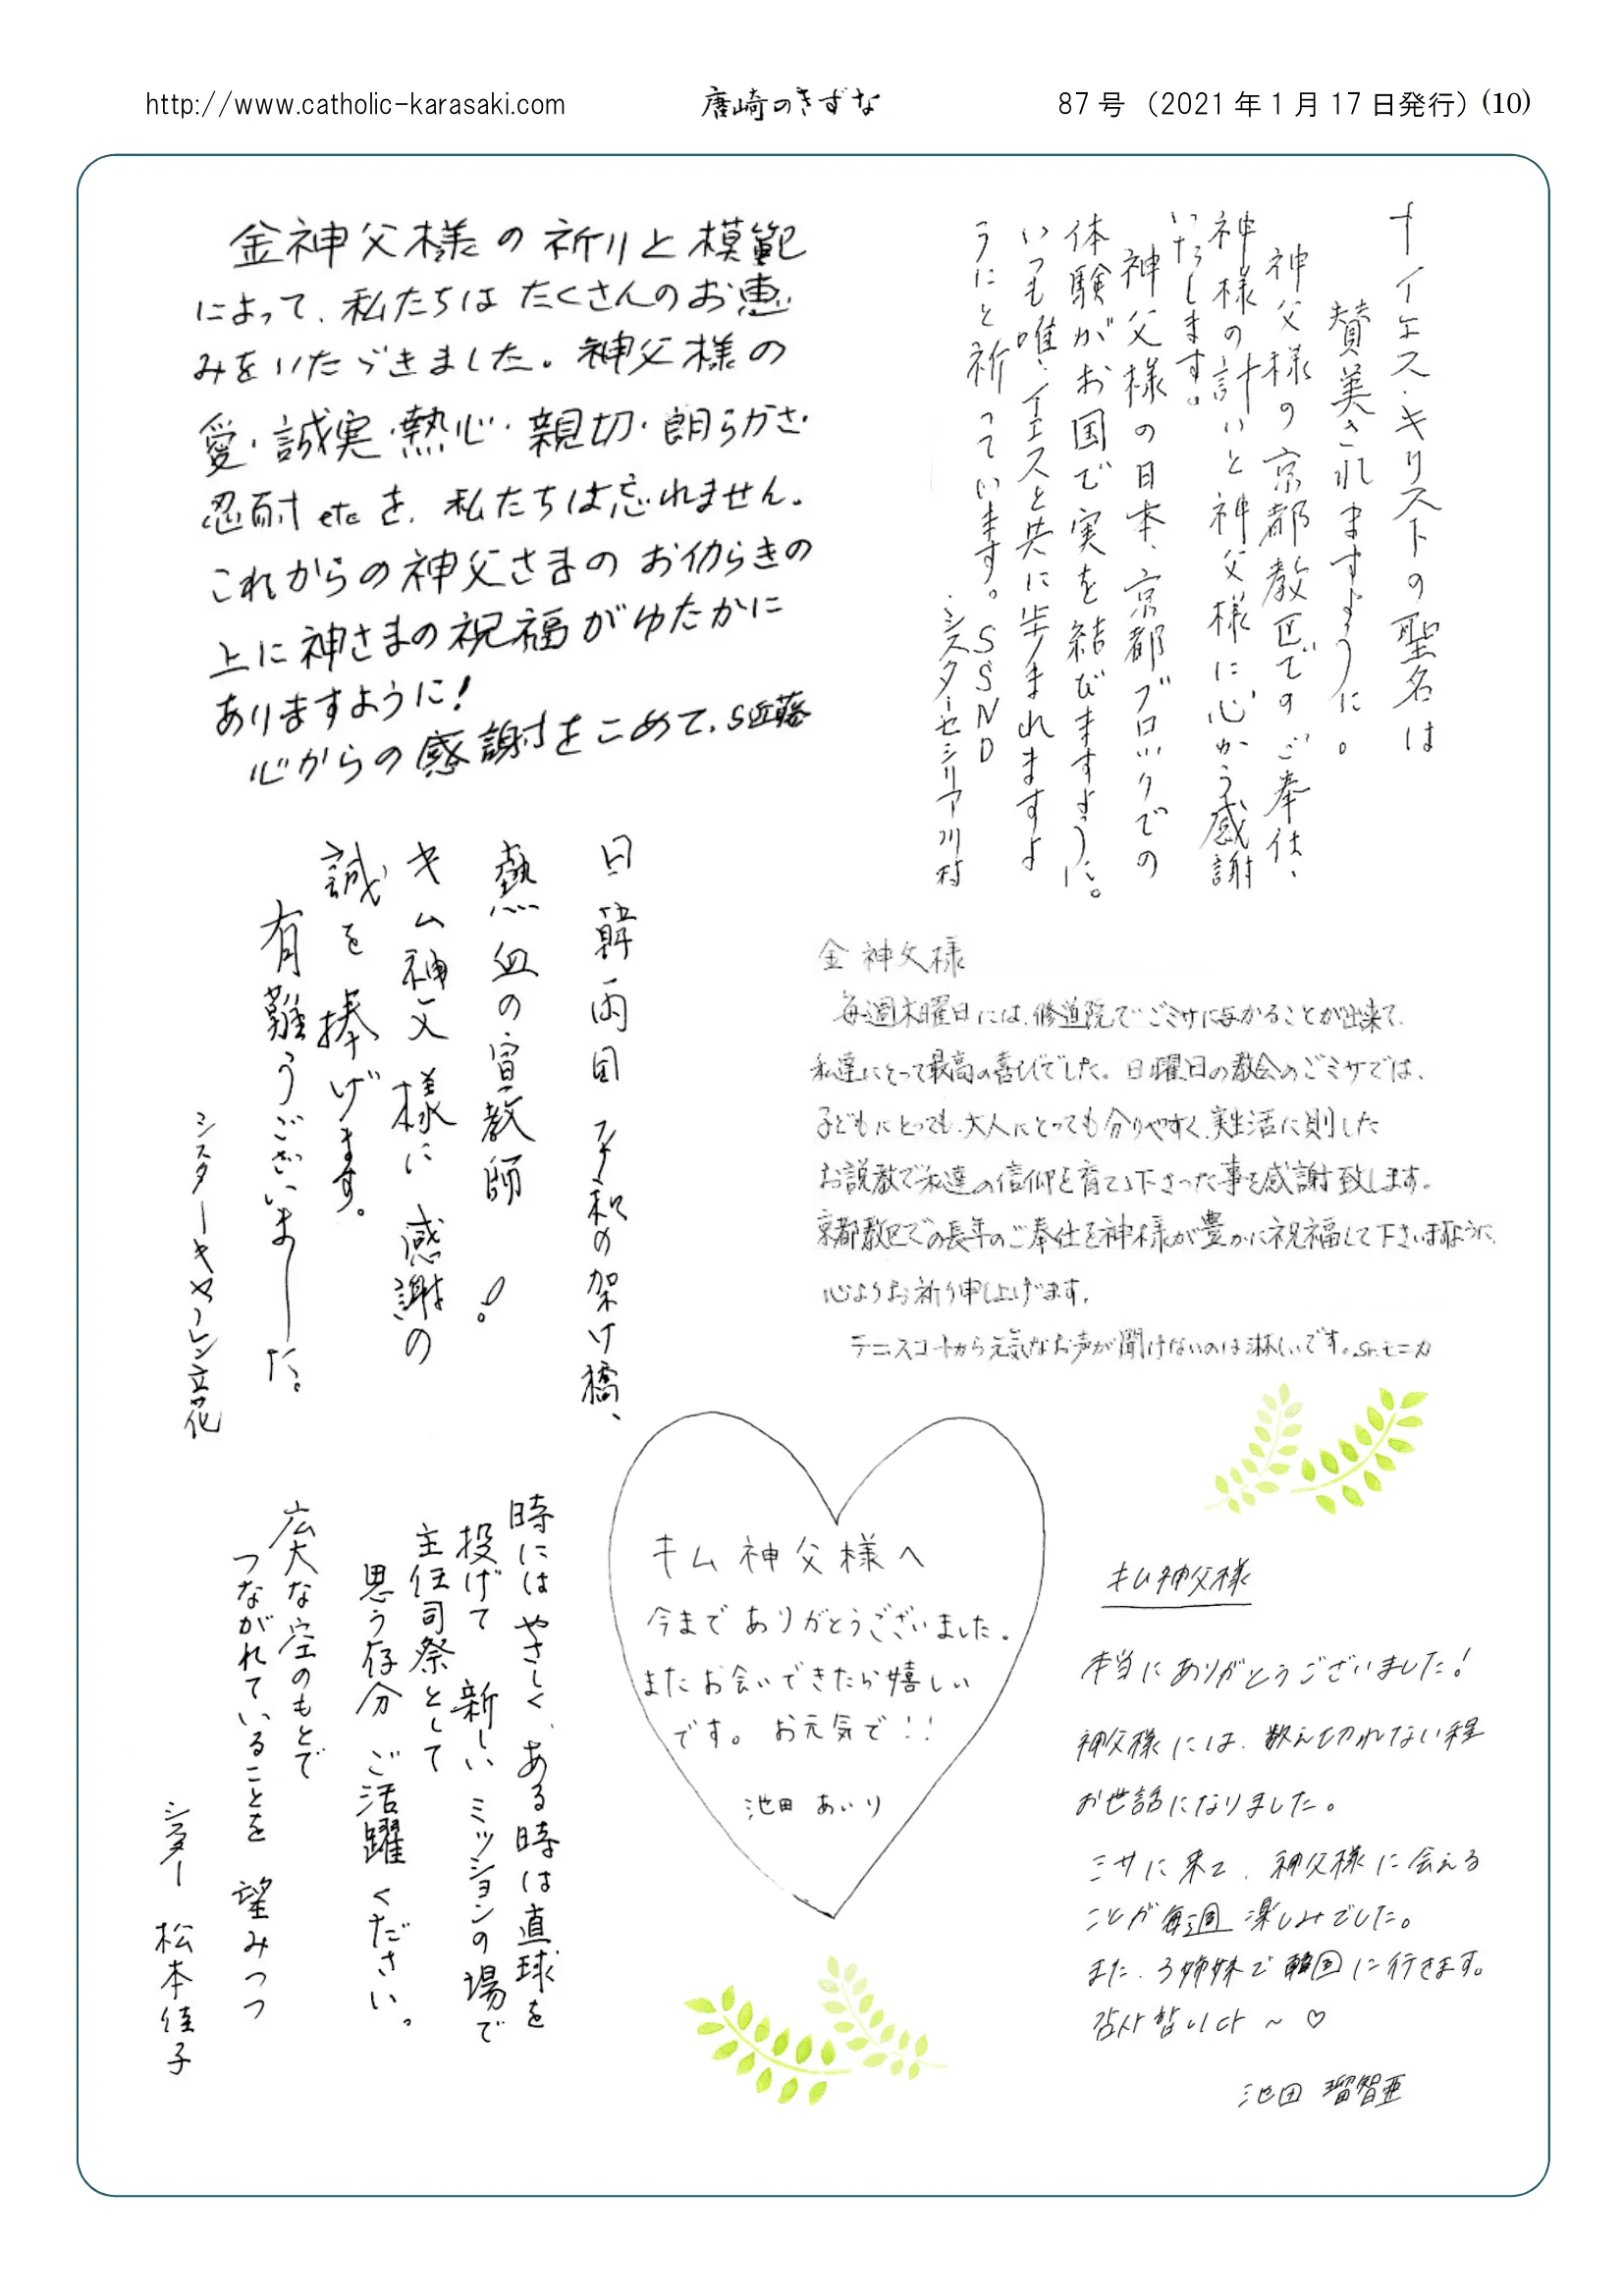 http://www.catholic-karasaki.com
唐崎のきずな
87号（2021年1月17日発行）(10)
金神父様の祈りと模範
によって、私たちはたくさんのお恵
みをいただきました。神父様の
愛・誠実・熱心・親切・朗らかさ・
忍耐etcを、私たちは忘れません。
これからの神父さまのお仂らきの
上に神さまの祝福がゆたかに
ありますように！
心からの感謝をこめて、S近藤
十イエス・キリストの聖名は
賛美されますように。
神父様の京都教区でのご奉仕、
神様の計いと神父様に心から感謝
いたします。
神父様の日本、京都ブロックでの
体験がお国で実を結びますように。
いつも唯、イエスと共に歩まれますよ
うにと祈っています。SSND
シスターセシリア川村
日韓両国平和の架け橋、
熱血の宣教師！
キム神父様に感謝の
誠を捧げます。
有難うございまーーした。
シスターキャレン立花
金神父様
毎週木曜日には、修道院でごミサに与かることが出来て、
私達にとって最高の喜びでした。日曜日の教会のごミサでは、
子どもにとっても、大人にとっても分りやすく、実生活に則した
お説教で私達の信仰を育てゝ下さった事を感謝致します。
京都教区での長年のご奉仕を神様が豊かに祝福して下さいますように、
心よりお祈り申し上げます。
テニスコートから元気なお声が聞けないのは淋しいです。Sr.モニカ
時にはやさしく、ある時は直球を
投げて 新しいミッションの場で
主任司祭として
思う存分 ご活躍ください。
広大な空のもとで
つながれていることを 望みつつ
シスター 松本佳子
キム神父様へ
今までありがとうございました。
またお会いできたら嬉しい
です。お元気で！！
池田 あいり
キム神父様
本当にありがとうございました！
神父様には、数え切れない程
お世話になりました。
ミサに来て、神父様に会える
ことが毎週楽しみでした。
また、3姉妹で韓国に行きます。
감사합니다 ~ ♡
池田 瑠智亜